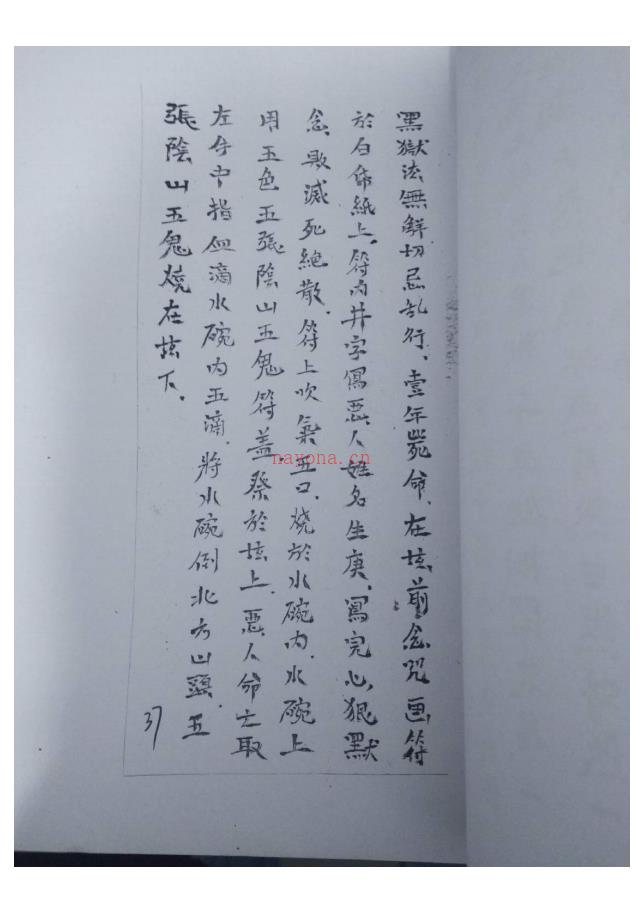 黑獄法無解切忌乱行、壹年斃命、在坛前念咒画符
於白佈紙上、符内井字寫惡人姓名生庚、寫完心狠默
念敗滅死絕散、符上吹氣五口、燒於水碗内、水碗上
用五色五張陰山五鬼符盖、祭於坛上、惡人命亡取
左手中指血滴水碗内五滴、將水碗倒北方山頭、五
張陰山五鬼燒在坛下、
37
nayona.cn